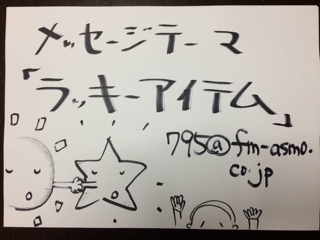 メッセージテーマ
「ラッキーアイテム」
795@fm-asmo.
co.jp